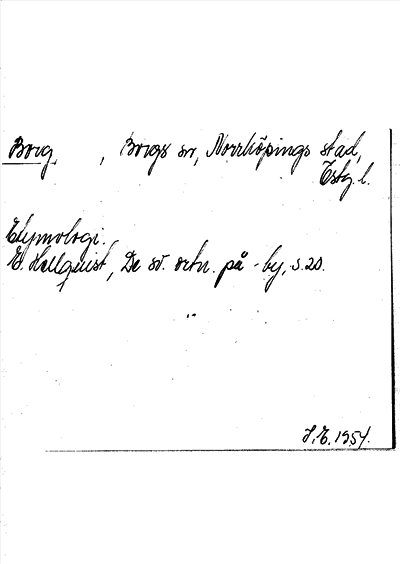 Borg, Borgs sn, Norrköpings stad,
Östg. l.
Etymologi.
E. Hellquist, De sv. ortn. på -by, s. 20.
J.E. 1954.